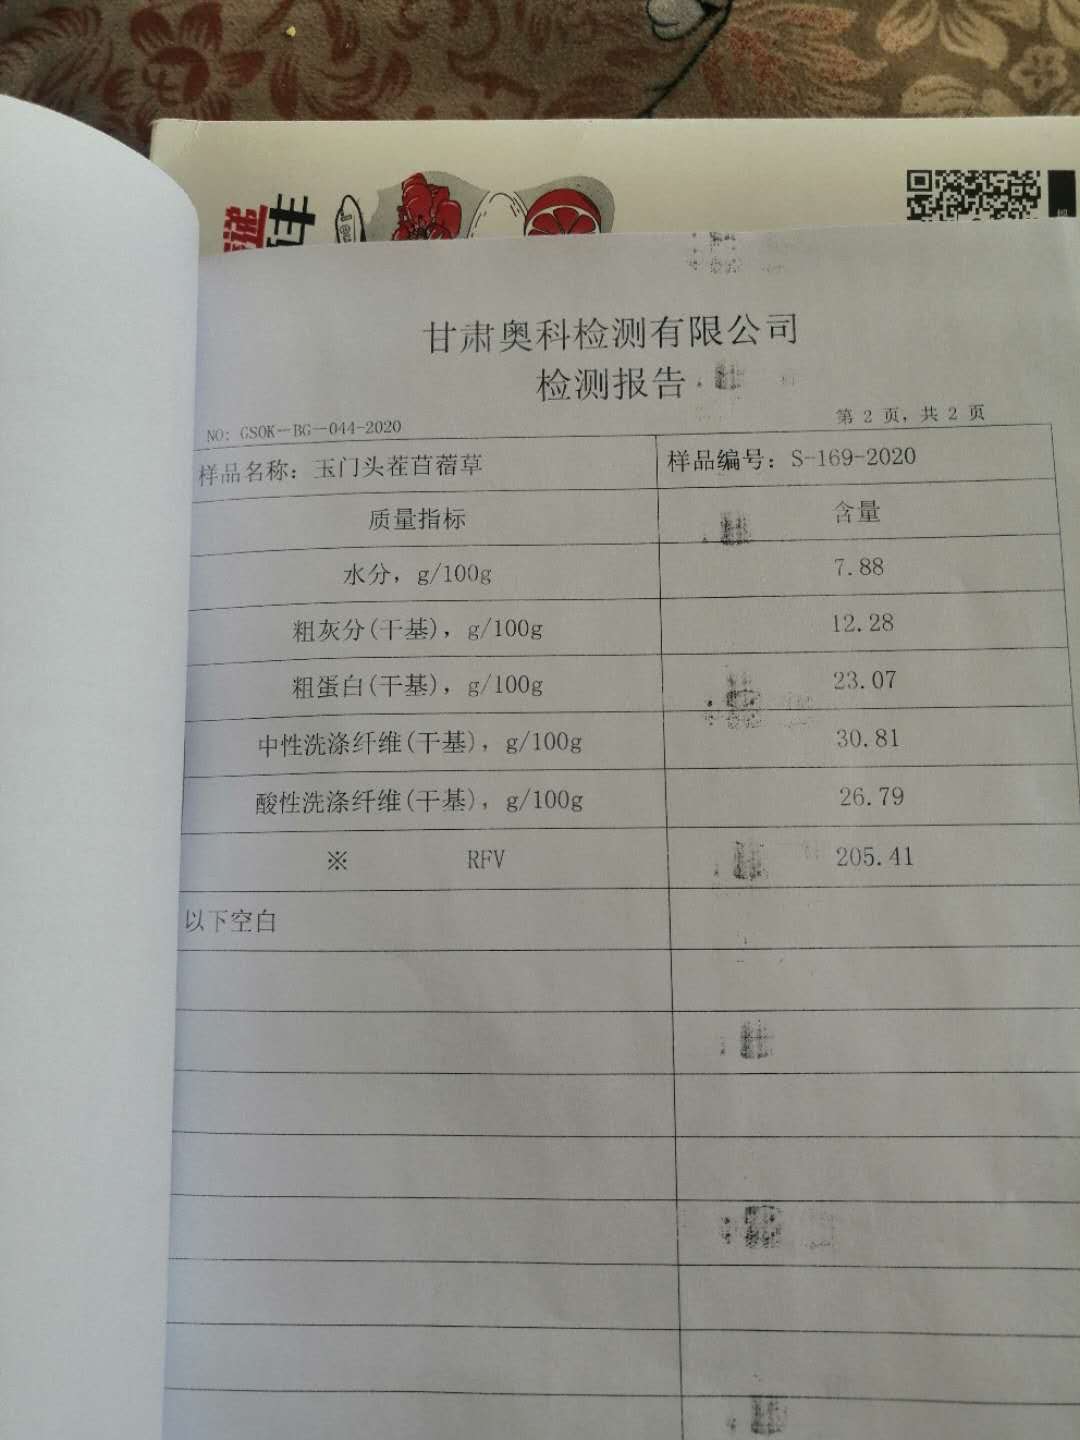 甘肃奥科检测有限公司
检测报告
NO: GSOK-BG-044-2020
第 2 页，共 2 页
样品名称：玉门头茬苜蓿草 样品编号：S-169-2020
质量指标 含量
水分，g/100g 7.88
粗灰分(干基)，g/100g 12.28
粗蛋白(干基)，g/100g 23.07
中性洗涤纤维(干基)，g/100g 30.81
酸性洗涤纤维(干基)，g/100g 26.79
※ RFV 205.41
以下空白